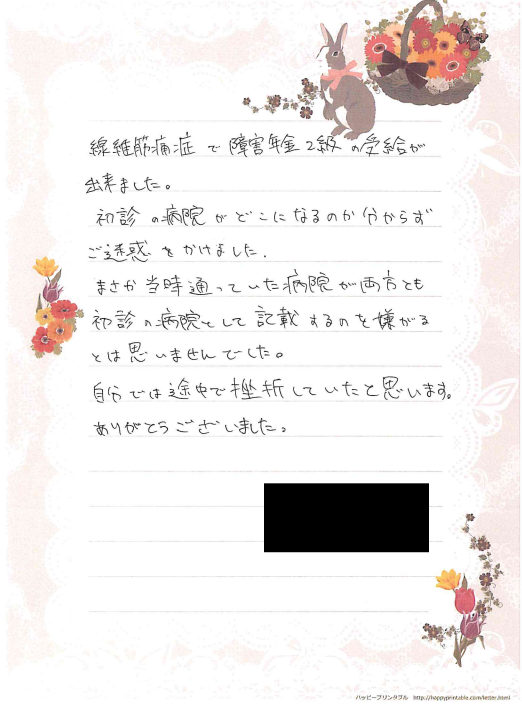 線維筋痛症で障害年金2級の受給が
出来ました。
初診の病院がどこになるのか分からず
ご迷惑をかけました.
まさか当時通っていた病院が両方とも
初診の病院として記載するのを嫌がる
とは思いませんでした。
自分では途中で挫折していたと思います。
ありがとうございました。
ハッピープリンタブル http://happyprintable.com/letter.html